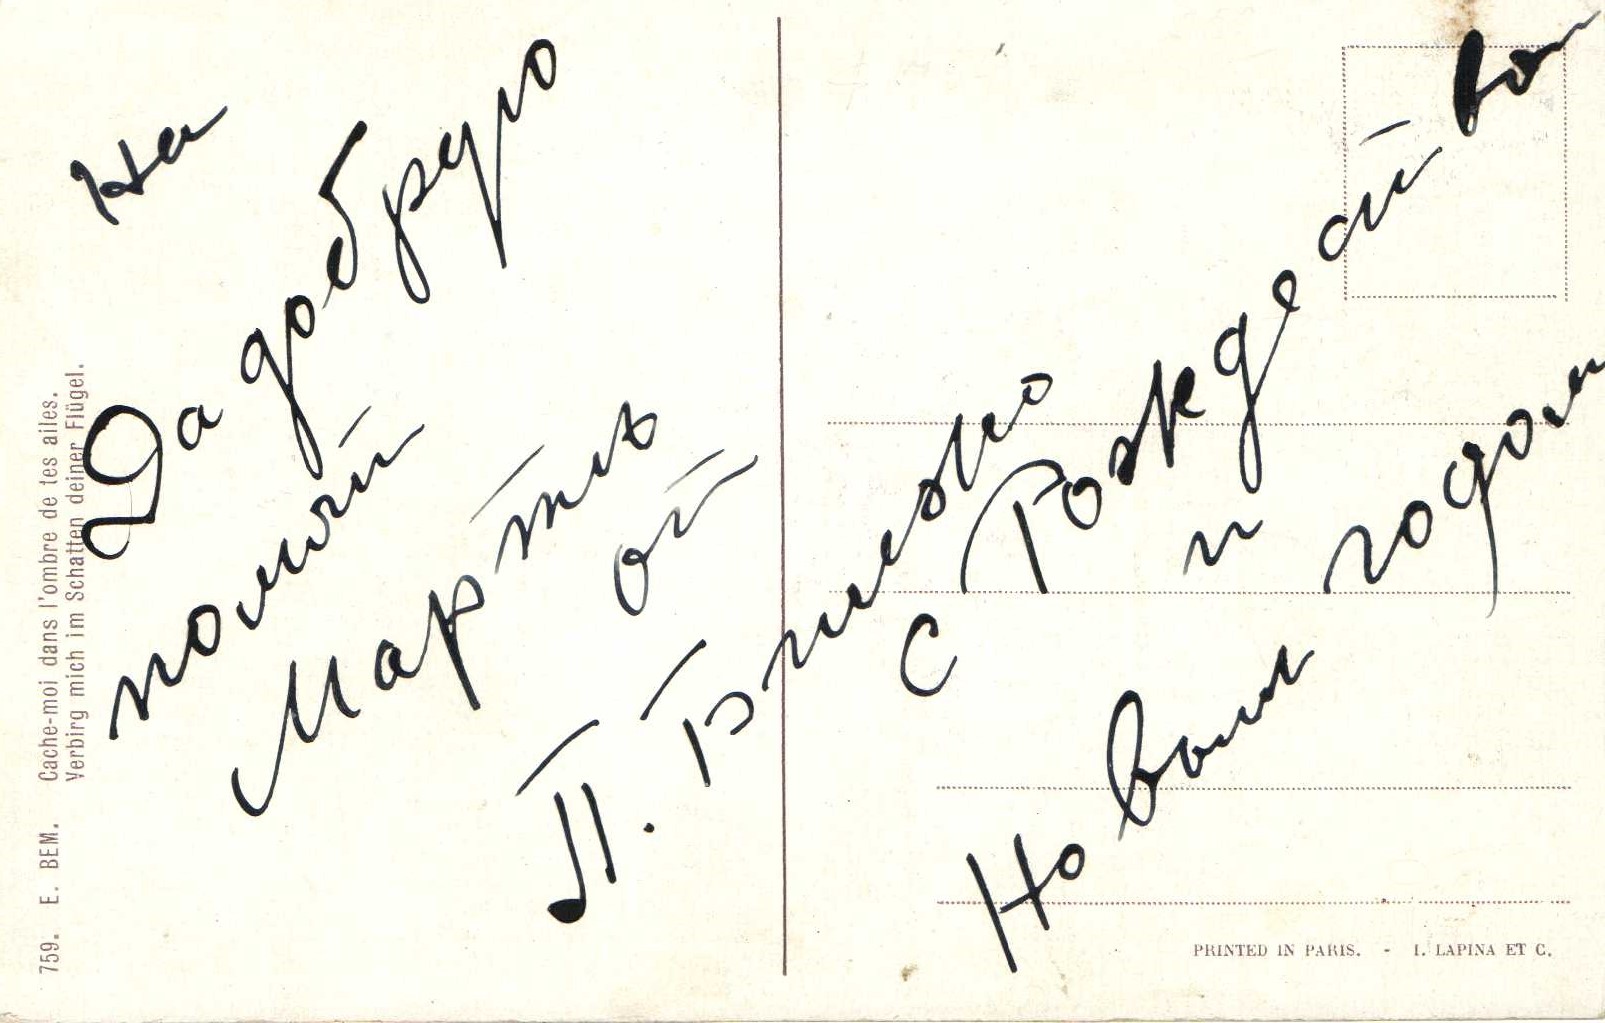 На
Да добрую
от
П.
С Рождеством
и
Новым годом
759. E. BEM. Cache-moi dans l'ombre de tes ailes.
Verbirg mich im Schatten deiner Flügel.
PRINTED IN PARIS. - I. LAPINA ET C.